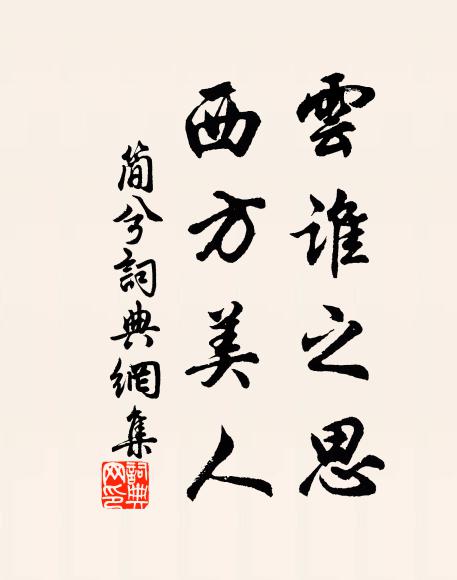 雲誰之思
西方美人
簡兮詞典網集
詞典
网印